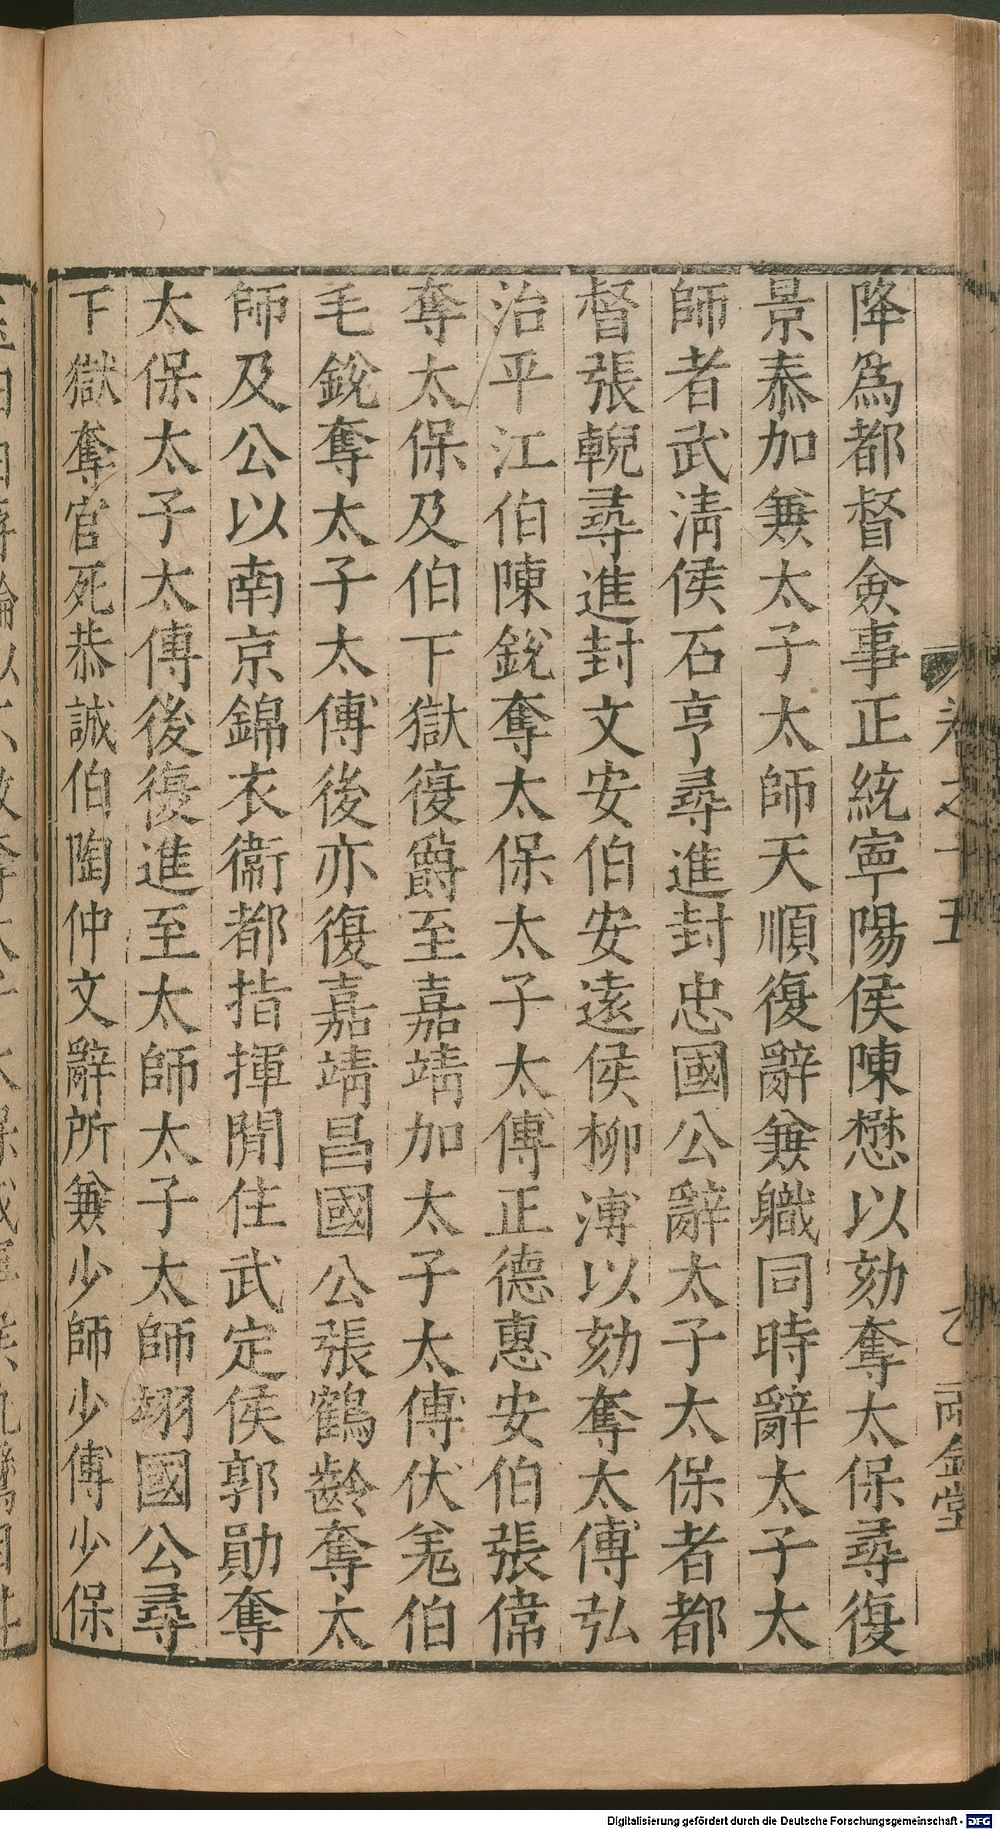 降爲都督僉事正統寧陽侯陳懋以劾奪太保尋復
景泰加兼太子太師天順復辭兼職同時辭太子太
師者武淸侯石亨尋進封忠國公辭太子太保者都
督張輗尋進封文安伯安遠侯柳溥以劾奪太傅弘
治平江伯陳銳奪太保太子太傅正德惠安伯張偉
奪太保及伯下獄復爵至嘉靖加太子太傅伏羌伯
毛銳奪太子太傅後亦復嘉靖昌國公張鶴齡奪太
師及公以南京錦衣衞都指揮閒住武定侯郭勛奪
太保太子太傅後復進至太師太子太師翊國公尋
下獄奪官死恭誠伯陶仲文辭所兼少師少傅少保
卷之十五
乙
兩金堂
Digitalisierung gefördert durch die Deutsche Forschungsgemeinschaft - DFG